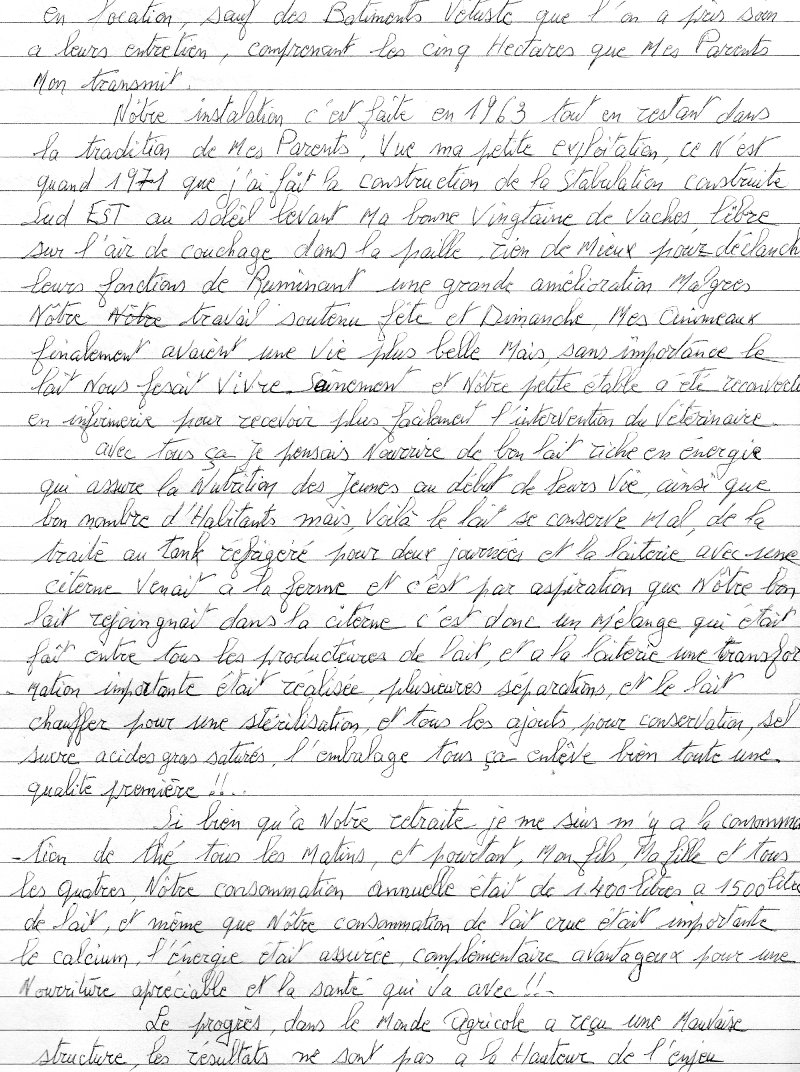 en location, sauf des Batiments Vétuste que l'on a pris soin
a leurs entretien, comprenant les cinq Hectares que Mes Parents
Mon transmit.
Nôtre instalation c'est faite en 1963 tout en restant dans
la tradition de Mes Parents, Vue ma petite exploitation, ce N'est
quand 1971 que j'ai fait la construction de la Stabulation construite
Sud EST au soleil levant Ma bonne Vingtaine de Vaches libre
sur l'air de couchage dans la paille, rien de Mieux pour déclanch
leurs fonctions de Ruminant une grande amélioration Malgres
Nôtre Nôtre travail soutenu fête et Dimanche, Mes Animeaux
finalement avaient une Vie plus belle Mais, sans importance le
lait Nous fesait Vivre Sainement et Nôtre petite étable a été reconverti
en infirmerie pour recevoir plus facilement l'intervention du Véterinaire.
avec tous ça je pensais Nourrire de bon lait riche en énergie
qui assure la Nutrition des Jeunes au début de leurs Vie, ainsi que
bon nombre d'Habitants mais, Voilà le lait se conserve Mal, de la
traite au tank réfrigéré pour deux journées et la laiterie avec une
citerne Venait a la ferme et c'est par aspiration que Nôtre bon
lait rejoingnait dans la citerne c'est donc un Mélange qui était
fait entre tous les producteures de lait, et a la laiterie une transfor
- Mation importante était réalisée, plusieures séparations, et le lait
chauffer pour une stérilisation, et tous les ajouts, pour conservation, sel
sucre acides gras saturés, l'embalage tous ça enlêve bien toute une
qualite première !!..
Si bien qu'a Notre retraite je me suis m'y a la consomma
-tion de thé tous les Matins, et pourtant, Mon fils, Ma fille et tous
les quatres, Nôtre consommation annuelle était de 1.400 litres a 1500 litre
de lait, et même que Nôtre consommation de lait crue était importante
le calcium, l'énergie était assurée, complémentaire avantageux pour une
Nourriture apréciable et la santé qui va avec !!-
Le progrès, dans le Monde Agricole a reçu une Mauvaise
structure, les résultats ne sont pas a la Hauteur de l'enjeu